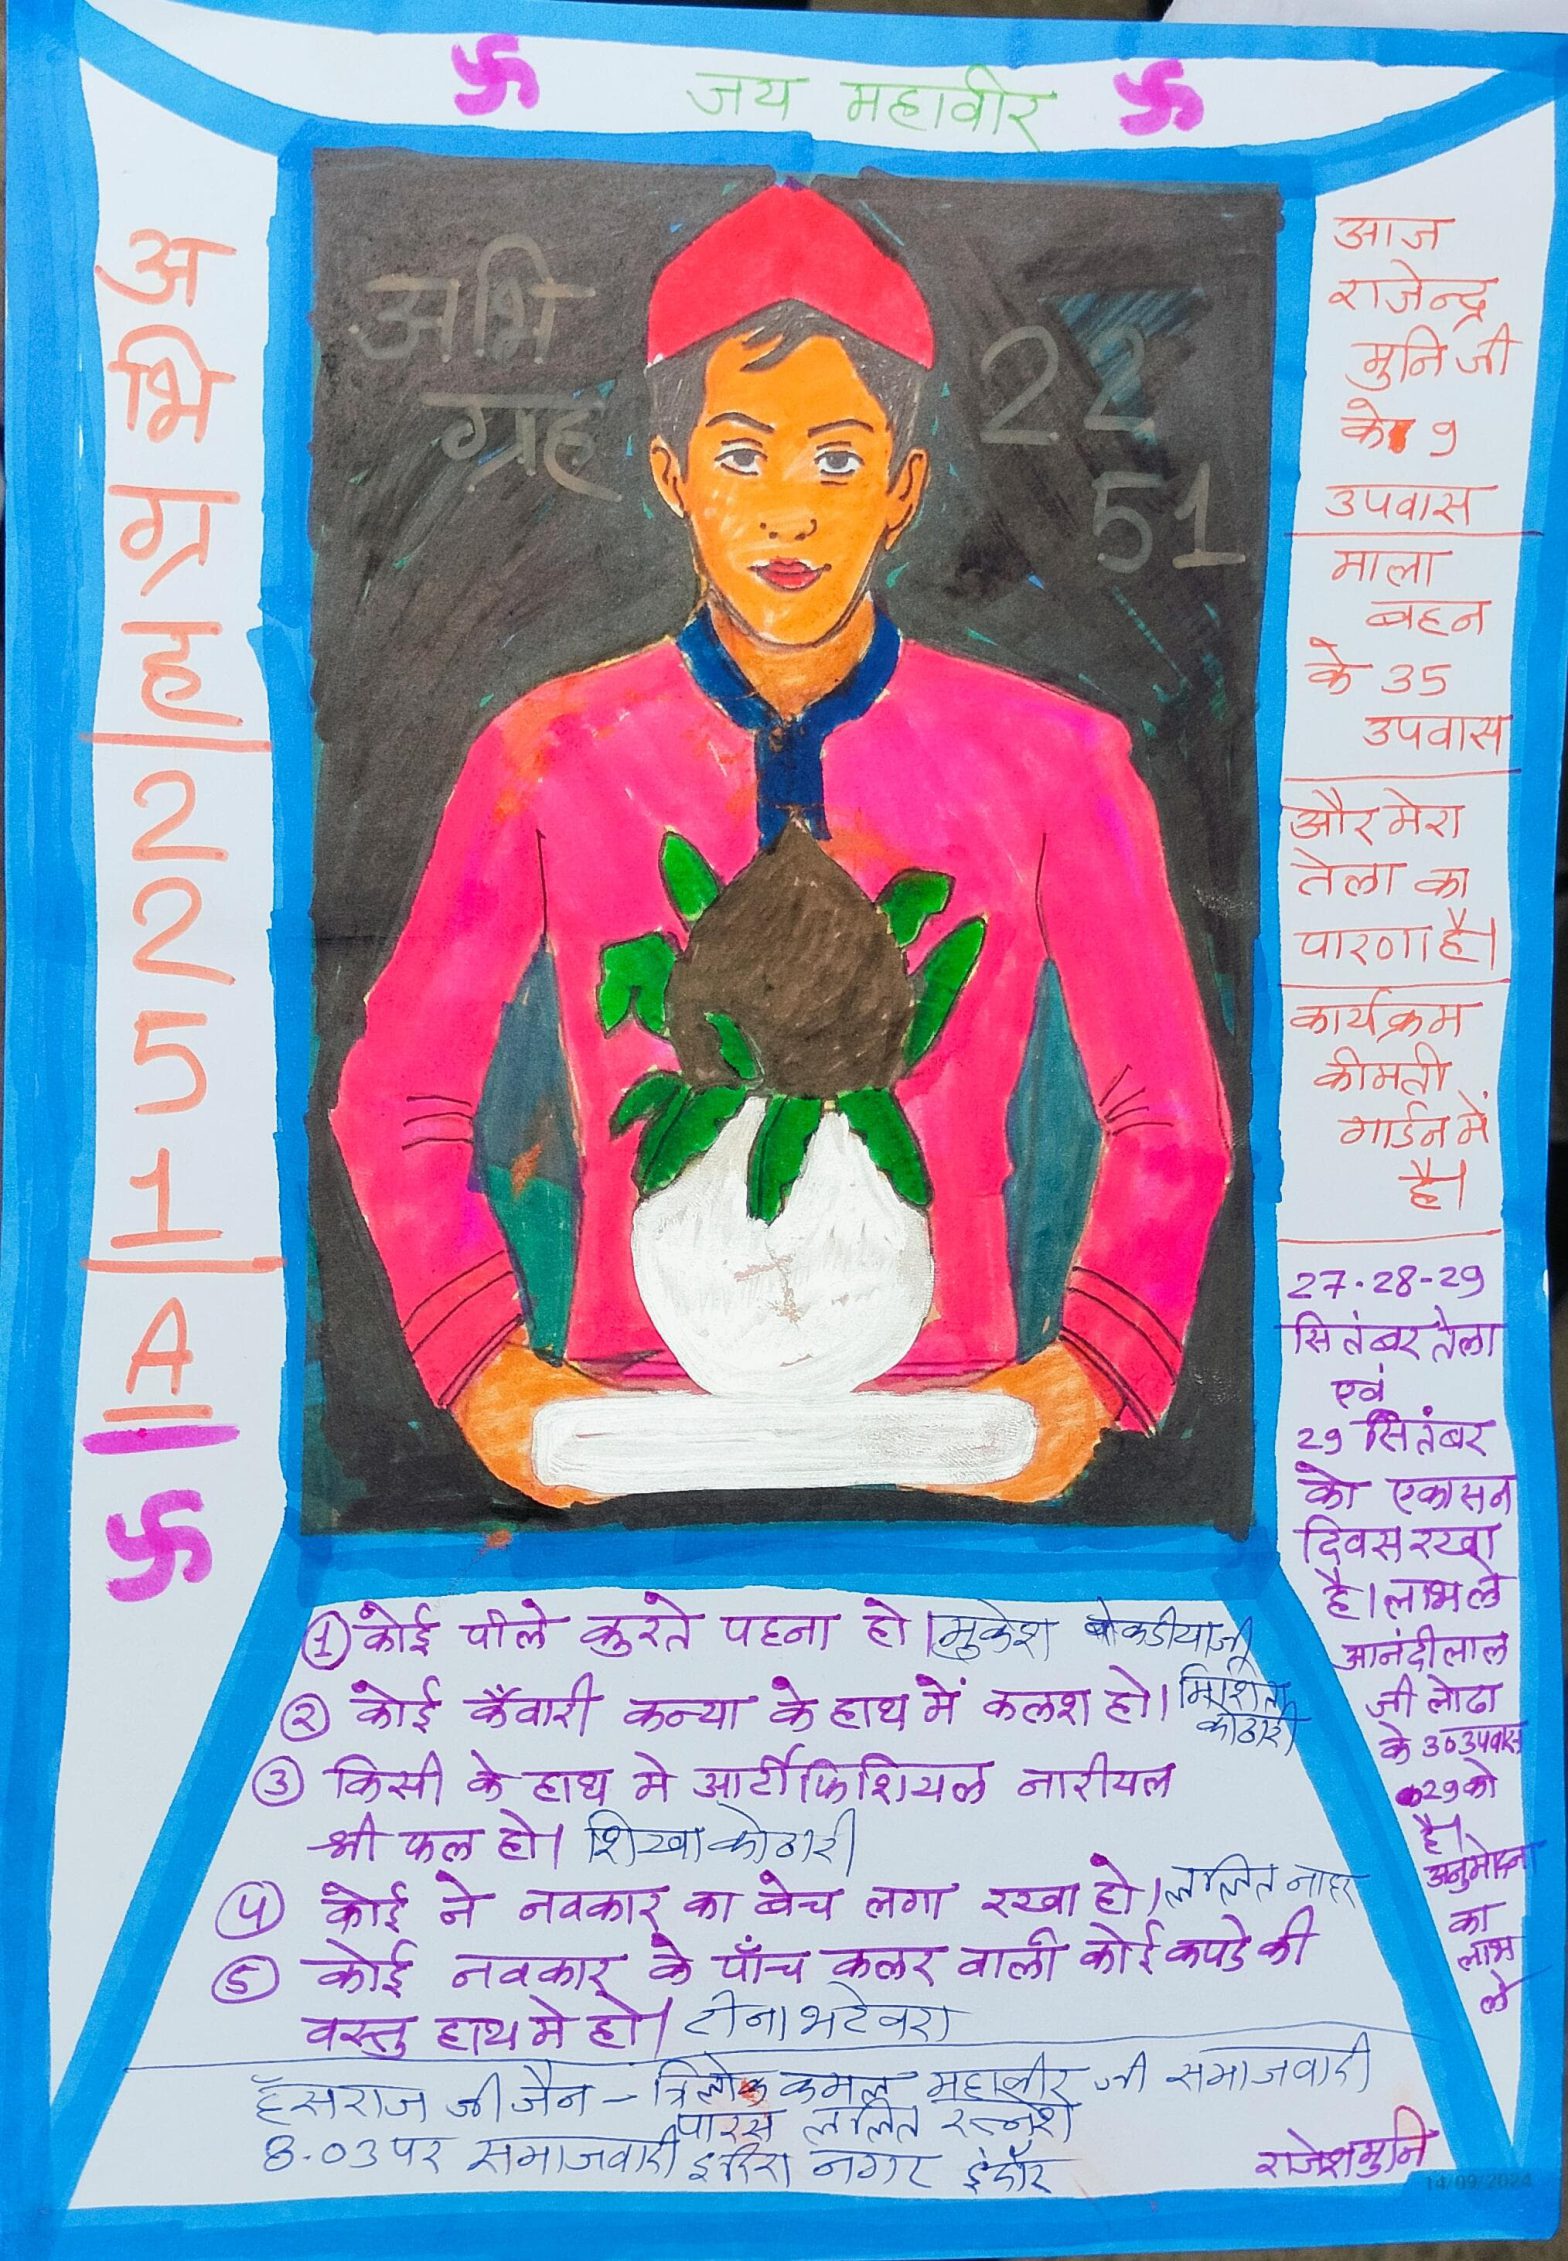 जय महावीर
अ
भि
ग्र
ह
2
2
5
1
A
अभि
ग्रह
22
51
आज
राजेन्द्र
मुनि जी
के 9
उपवास
माला
बहन
के 35
उपवास
और मेरा
तेला का
पारणा है।
कार्यक्रम
कीमती
गार्डन में
है।
27-28-29
सितंबर तेला
एवं
29 सितंबर
को एकासन
दिवस रखा
है। लाभ ले
आनंदीलाल
जी लोढा
के 30 उपवास
29 को
है।
अनुमोदना
का
लाभ
ले
① कोई पीले कुरते पहना हो। मुकेश बोकडीया जी
② कोई कँवारी कन्या के हाथ में कलश हो।
कोठारी
③ किसी के हाथ मे आर्टीफिशियल नारीयल
श्री फल हो। शिखा कोठारी
④ कोई ने नवकार का बेच लगा रखा हो। ललित नाहर
⑤ कोई नवकार के पाँच कलर वाली कोई कपडे की
वस्तु हाथ मे हो। टीना भटेवरा
हँसराज जी जैन - त्रिलोक कमल महावीर जी समाजवादी
पारस ललित रत्नेश
8.03 पर समाजवादी इंदिरा नगर इंदौर
राजेश मुनि
14/09/2024